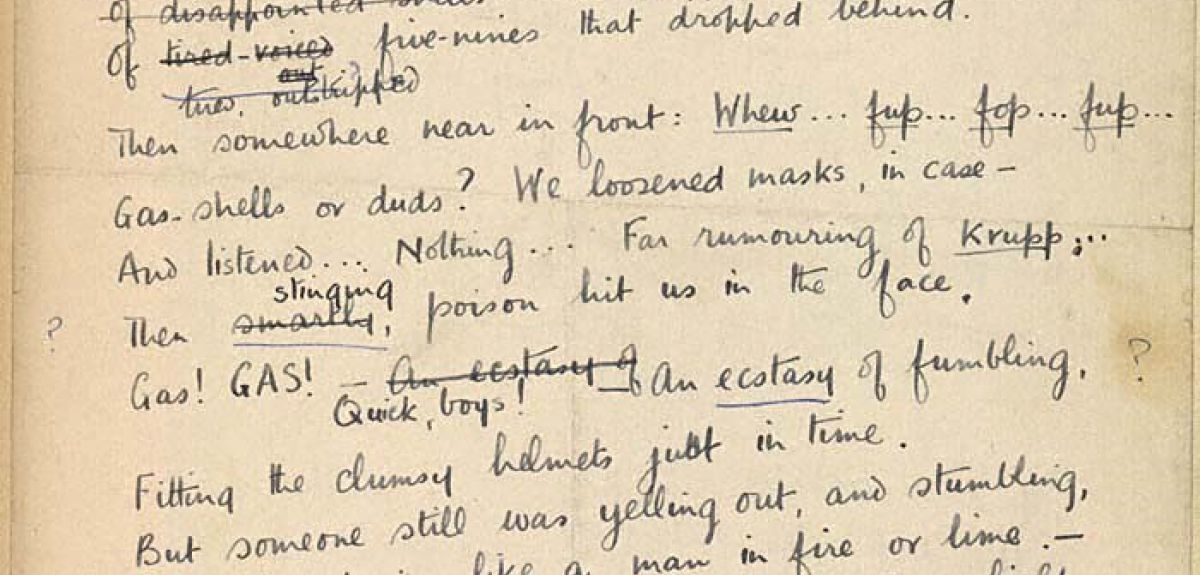 of disappointed shells
of tired-voiced five-nines that dropped behind.
out
tired, outstripped
Then somewhere near in front: Whew... fup... fop... fup...
Gas-shells or duds? We loosened masks, in case —
And listened.... Nothing.... Far rumouring of Krupp;..
stinging
? Then smartly, poison hit us in the face.
Gas! GAS! — An ecstasy of An ecstasy of fumbling, ?
Quick, boys!
Fitting the clumsy helmets just in time.
But someone still was yelling out, and stumbling,
like a man in fire or lime. —